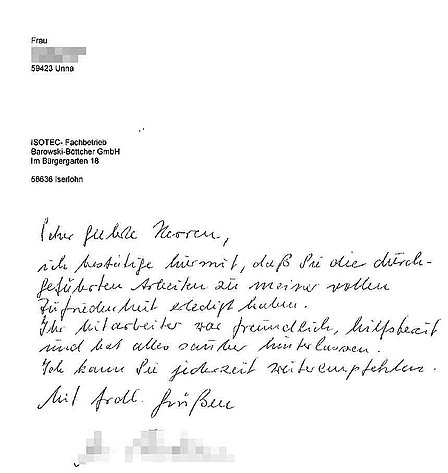 Frau
59423 Unna
ISOTEC- Fachbetrieb
Barowski-Böttcher GmbH
Im Bürgergarten 18
58636 Iserlohn
Sehr geehrte Herren,
ich bestätige hiermit, daß Sie die durch-
geführten Arbeiten zu meiner vollen
Zufriedenheit erledigt haben.
Ihr Mitarbeiter war freundlich, hilfsbereit
und hat alles sauber hinterlassen.
Ich kann Sie jederzeit weiterempfehlen.
Mit frdl. Grüßen